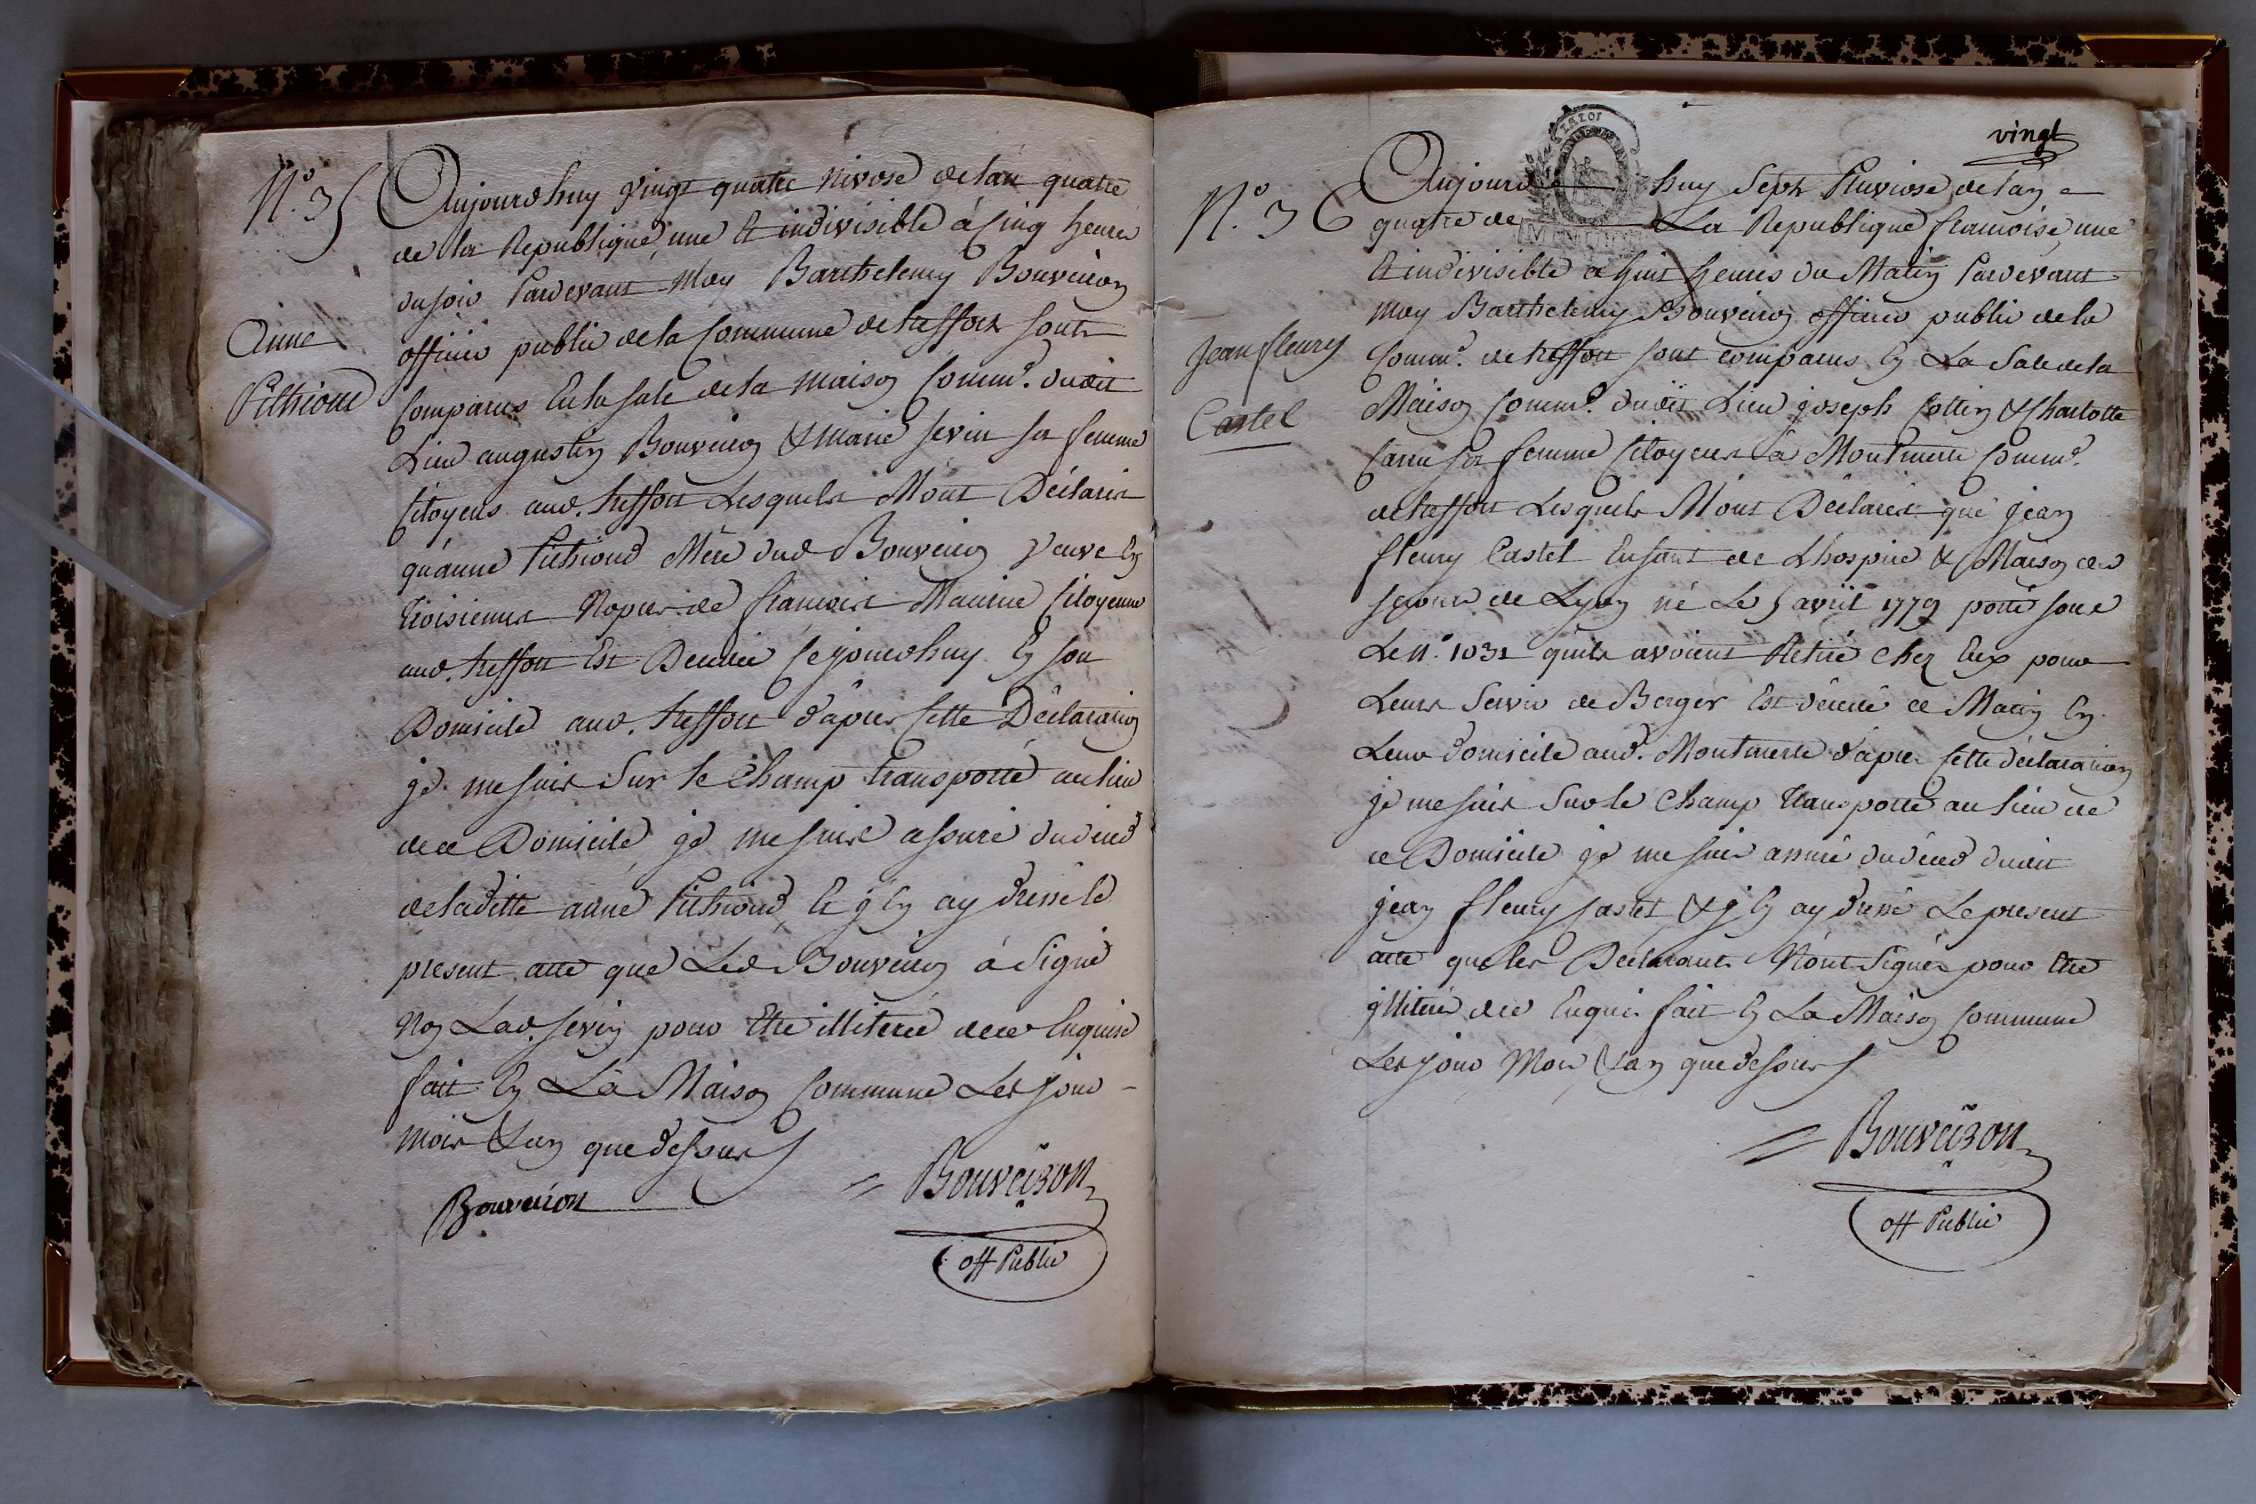 N.° 35
Anne
Pithioud
Aujourdhuy vingt quatre Nivose de lan quatre
de la Republique une et indivisible á Cinq heures
du soir Pardevant Moy Barthelemy Bouveiron
officier public de la Commune de treffort sont
Comparus En la sale de la maison Comm.e dudit
Lieu augustin Bouveiron & marie sevin sa femme
Citoyens aud. treffort Lesquels Mont Déclarés
qu'anne Pithioud Mére dud Bouveiron veuve En
troisiemes Nopces de francois Citoyenne
aud. treffort Est Decedée Cejourdhuy En son
Domicile aud. treffort d'apres Cette Déclaration
je me suis Sur le Champ transporté au lieu
de ce Domicile je me suis assuré du deced
de laditte anne Pithioud et j'En ay dressé le
present acte que Led Bouveiron á Signé
Non Lad. sevin pour Etre illiterée de ce Enquise
fait En La Maison Commune Les jour -
mois & an que dessus
Bouveiron
Bouveiron
off Public
vingt
N.° 36
Jean fleury
Castel
Aujourd huy Sept Pluviose de lan
quatre de La Republique francoise, une
Et indivisible a huit heures du Matin Pardevant
moy Barthelemy Bouveiron officier public de la
Comm.e de treffort sont comparus En La Sale de la
Maison Comm.e dudit Lieu joseph Cottin & Charlotte
Carru sa femme Citoyens à Montmerle Comm.e
de treffort Lesquels Mont Déclarés que jean
fleury Castel Enfant de Lhospice & Maison de
secours de Lyon né Le 5 avril 1779 porté sous
Le N.° 1031 quils avoient Retiré Chez Eux pour
Leurs Servir de Berger Est décédé ce Matin En
Leur domicile aud. Montmerle d'apres Cette déclaration
je me suis Sur le Champ transporté au lieu de
ce Domicile je me suis assuré du deced dudit
jean fleury Castel & j'En ay dressé Le present
acte que les Declarants N'ont Signés pour Etre
jlliterés de ce Enquis fait En La Maison Commune
Les jour Mois & an que dessus
Bouveiron
off Public